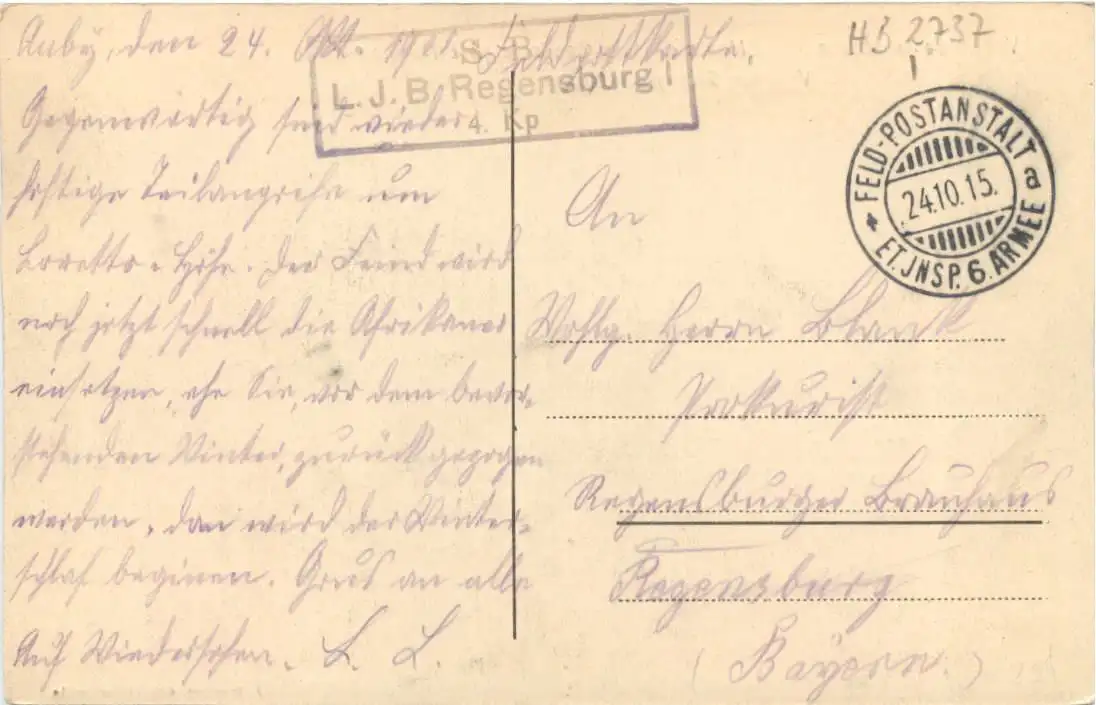 Auby, den 24. Okt. 1915. Feldpostkarte.
Gegenwärtig sind wieder
heftige Teilangrife um
Loretto-Höhe. Der Feind wird
noch jetzt schnell die Afrikaner
einsetzen, ehe Sie, vor dem bevor-
stehenden Winter, zurückgezogen
werden, dan wird der Winter-
schlaf beginen. Grus an alle
Auf Wiedersehen. L. L.
S. B.
L. J. B. Regensburg I
4. Kp
HB 2737
I
FELD-POSTANSTALT a
24.10.15.
* ET.JNSP. 6. ARMEE
An
Wohlg. Herrn Blank
Prokurist
Regensburger Brauhaus
Regensburg
(Bayern.)